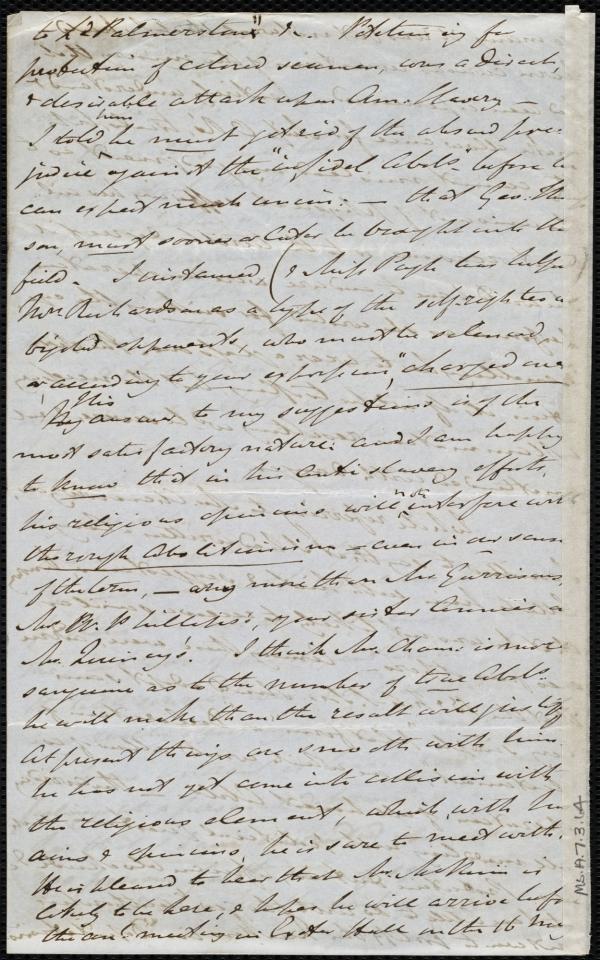 to Ld Palmerston" &c. Petitioning for
protection of colored seamen, was a direct,
& desirable attack upon Am. Slavery —
I told him he must get rid of the absurd pre-
judice against the "infidel Abols" before he
can expect much union: — that Geo. Thomp
son, must sooner or later be brought into the
field. I instanced (& Miss Pugh has helped
Mrs Richardson as a type of the self-righteous
bigoted opponents, who must be silenced
or according to your expression, "charged over
His answer to my suggestions is of the
most satisfactory nature: and I am happy
to know that in his anti slavery efforts,
his religious opinions will not interfere with
thorough Abolitionism — even in our sense
of the term, — any more than Mr Garrison's
Mr. W. Phillips's, your sister Annie's or
Mr. Quincy's. I think Mr. Cham: is more
sanguine as to the number of true Abols.
he will make than the result will justify
At present things are smooth with him
he has not yet come into collision with
the religious element, which, with his
aims & opinions, he is sure to meet with.
He is pleased to hear that Mr. McKim is
likely to be here, & hopes he will arrive before
the anl meeting in Exeter Hall on the 16
Ms.A.7.3.14